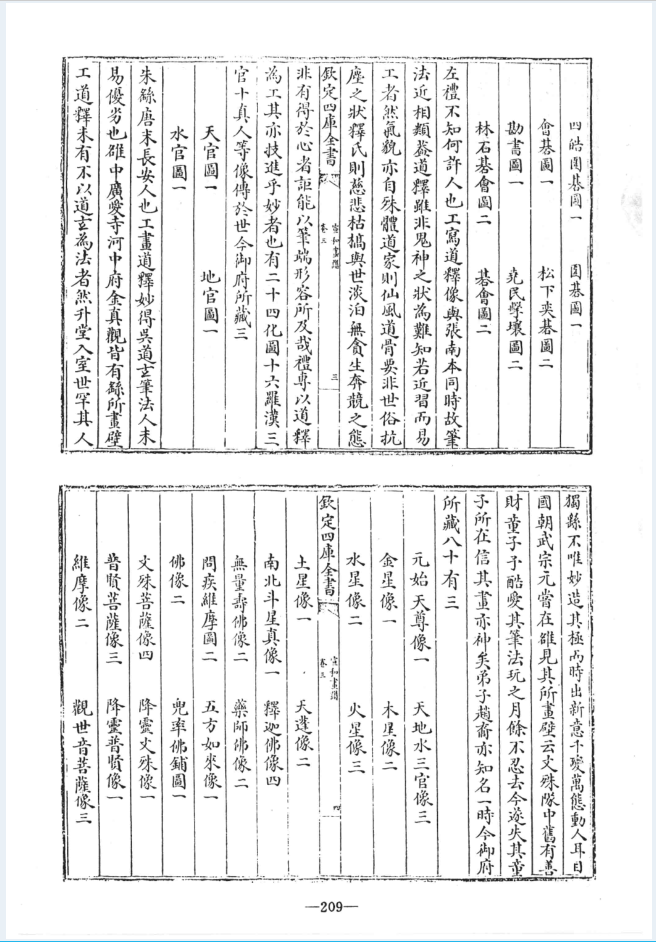 四皓圍碁圖一　圍碁圖一
會碁圖一　松下奕碁圖二
勘書圖一　堯民擊壤圖二
林石碁會圖二　碁會圖二
左禮不知何許人也工寫道釋像與張南本同時故筆
法近相類葢道釋雖非鬼神之狀為難知若近習而易
工者然氣貌亦自殊體道家則仙風道骨要非世俗抗
塵之狀釋氏則慈悲枯槁與世淡泊無貪生奔競之態
欽定四庫全書　宣和畫譜　卷三　三
非有得於心者詎能以筆端形容所及哉禮專以道釋
為工其亦技進乎妙者也有二十四化圖十六羅漢三
官十真人等像傳於世今御府所藏三
天官圖一　地官圖一
水官圖一
朱繇唐末長安人也工畫道釋妙得吳道玄筆法人未
易優劣也雒中廣愛寺河中府金真觀皆有繇所畫壁
工道釋未有不以道玄為法者然升堂入室世罕其人
獨繇不唯妙造其極而時出新意千變萬態動人耳目
國朝武宗元嘗在雒見其所畫壁云文殊隊中舊有善
財童子予酷愛其筆法玩之月餘不忍去今遂失其童
子所在信其畫亦神矣弟子趙裔亦知名一時今御府
所藏八十有三
元始天尊像一　天地水三官像三
金星像一　木星像二
水星像二　火星像三
欽定四庫全書　宣和畫譜　卷三　四
土星像一　天蓬像二
南北斗星真像一　釋迦佛像四
無量壽佛像二　藥師佛像二
問疾維摩圖二　五方如來像一
佛像二　兜率佛鋪圖一
文殊菩薩像四　降靈文殊像一
普賢菩薩像三　降靈普賢像一
維摩像二　觀世音菩薩像三
—209—